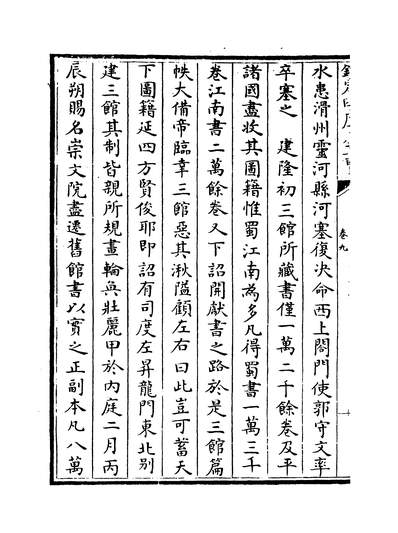 欽定四庫全書
卷九
水患滑州靈河縣河塞復決命西上閤門使郭守文率
卒塞之　建隆初三館所藏書僅一萬二千餘卷及平
諸國盡收其圖籍惟蜀江南為多凡得蜀書一萬三千
卷江南書二萬餘卷又下詔開獻書之路於是三館篇
帙大備帝臨幸三館惡其湫隘顧左右曰此豈可蓄天
下圖籍延四方賢俊耶即詔有司度左昇龍門東北别
建三館其制皆親所規畫輪奐壯麗甲於内庭二月丙
辰朔賜名崇文院盡遷舊館書以實之正副本凡八萬